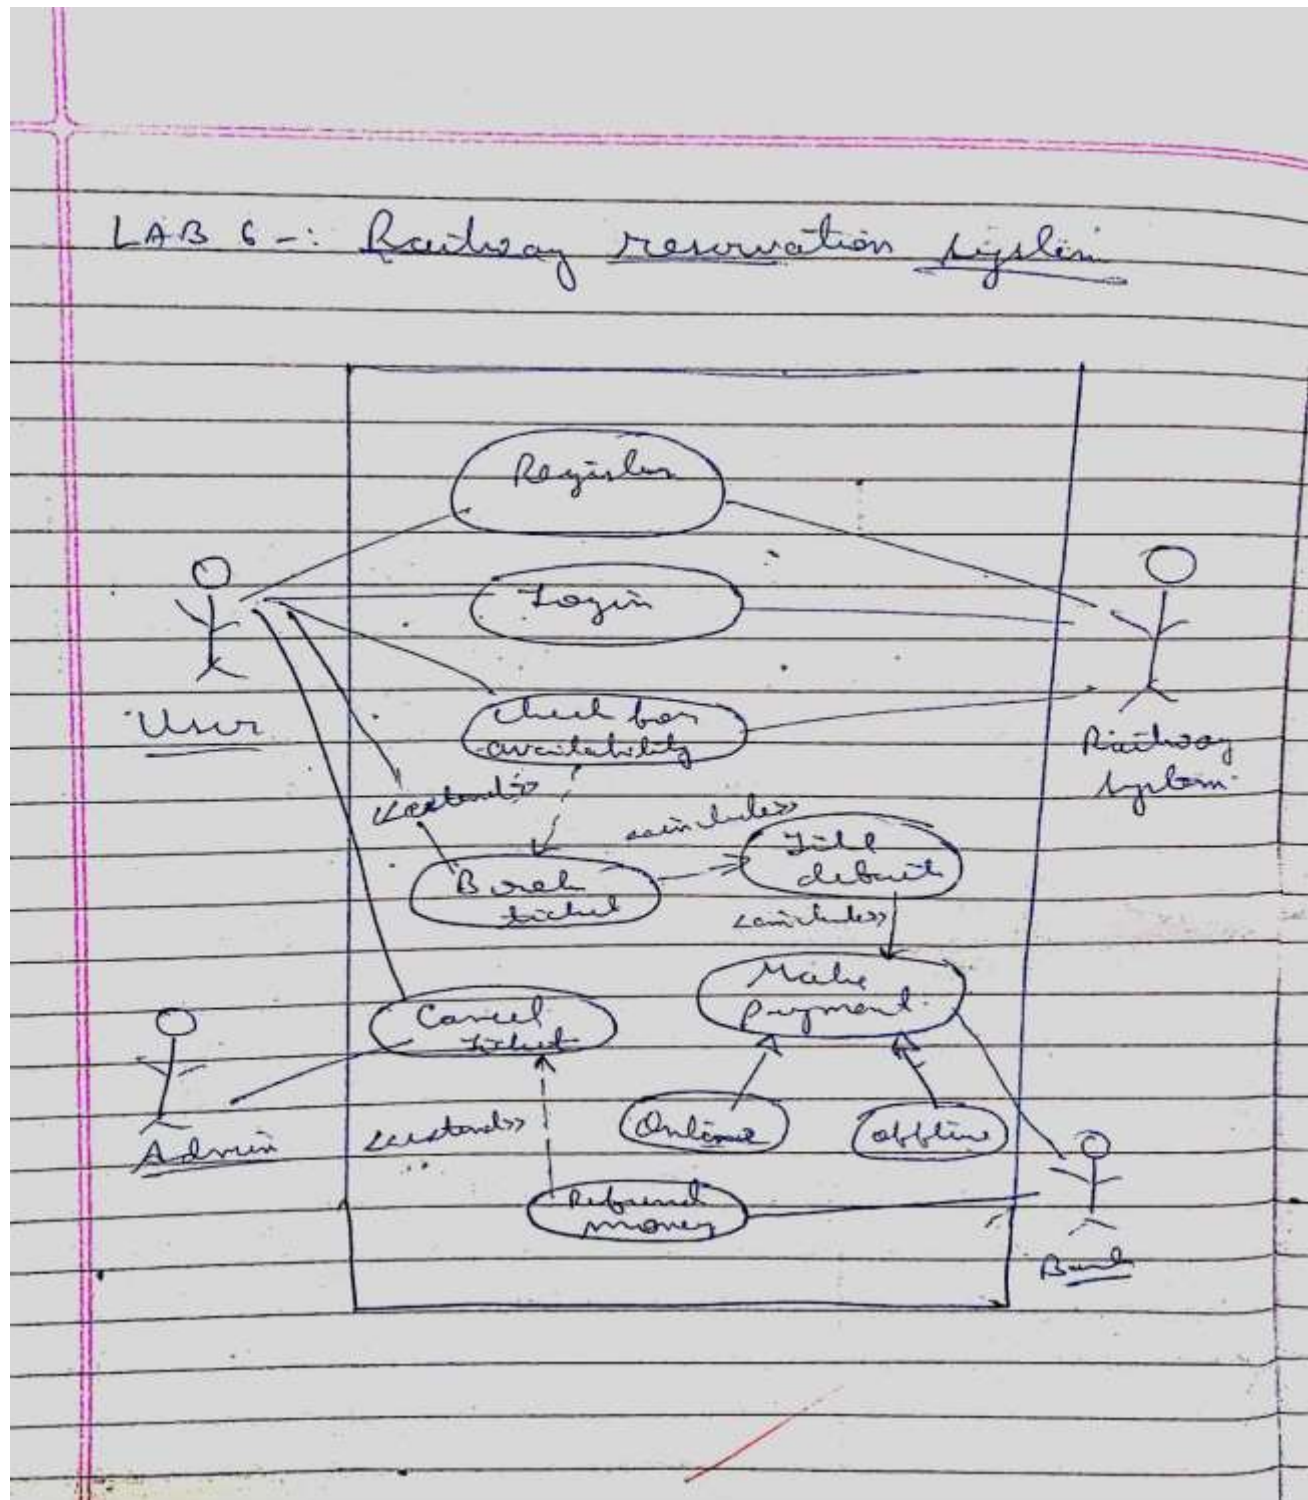 LAB 6 -: Railway reservation system
Register
Login
User
Check for
availability
Railway
system
<<extend>>
<<include>>
Book
ticket
Fill
details
<<include>>
Make
payment
Cancel
ticket
Admin
<<extend>>
Online
offline
Refund
money
Bank